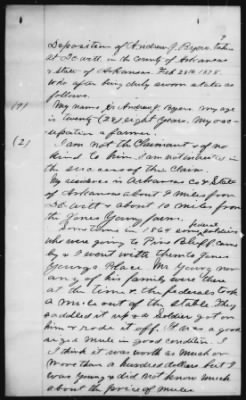 Deposition of Andrew J. Byers taken
at DeWitt in the County of Arkansas
& State of Arkansas. Feb 28th 1878.
Who after being duly sworn states as
follows.
(1) My name is Andrew J. Byers. My age
is Twenty (28) eight years. My occ-
upation a farmer.
(2) I am not the Claimant & of no
kind to him. I am not interested in
the success of the Claim.
My residence in Arkansas Co & State
of Arkansas about 9 miles from
DeWitt & about 10 miles from
the Jones Young farm.
Sometime in 1864 some federal soldiers
who were going to Pine Bluff came
by & I went with them to Jones
Young's Place. Mr Young nor
any of his family were there
at the time & the federals took
a mule out of the stable. They
saddled it up & a Soldier got on
him & rode it off. It was a good
sized mule in good condition. I
I think it was worth as much or
more than a hundred dollars but I
was young & did not know much
about the price of mules